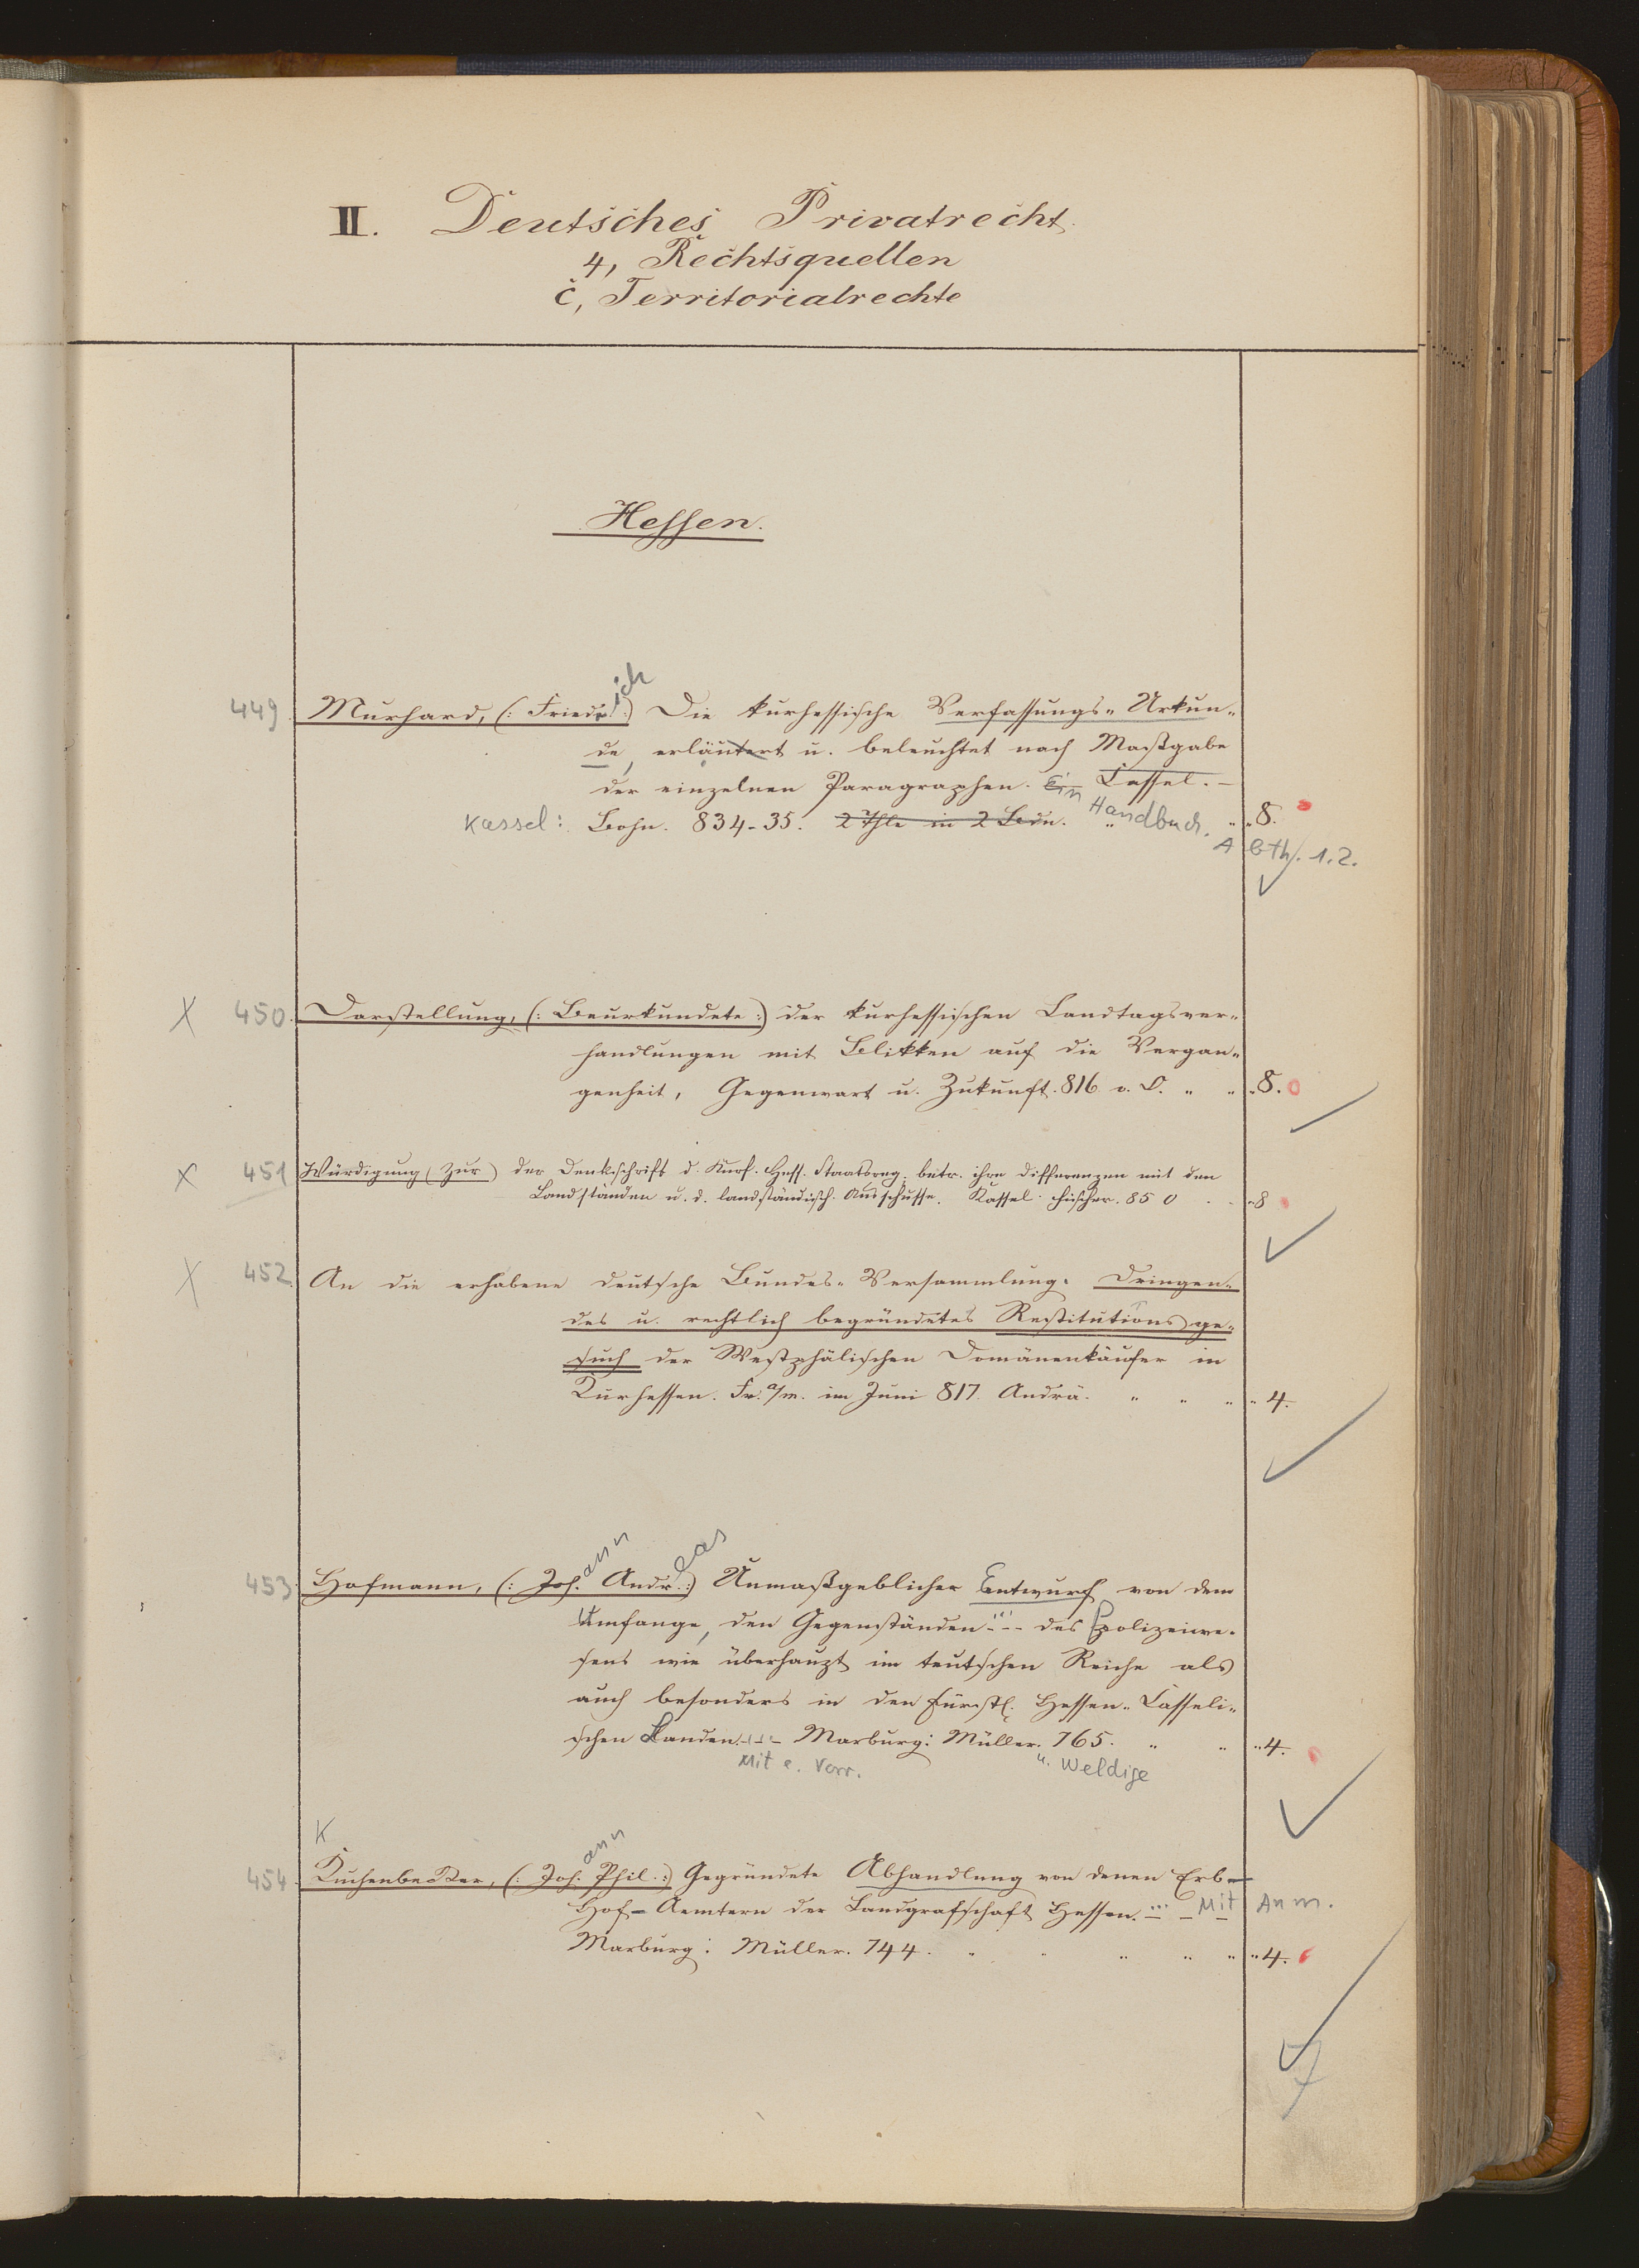 II. Deutsches Privatrecht.
4, Rechtsquellen
c, Territorialrechte
Hessen.
449 Murhard, (: Friedrich :) Die kurhessische Verfassungs-Urkun-
de, erläutert u. beleuchtet nach Maßgabe
der einzelnen Paragraphen. Ein Cassel. –
Kassel: Bohn. 834-35. 2 Thle in 2 Bdn. Handbuch. " 8.
Abth. 1.2.
X 450. Darstellung, (: Beurkundete :) der kurhessischen Landtagsver-
handlungen mit Blikken auf die Vergan-
genheit, Gegenwart u. Zukunft. 816 o. O. " " " 8.
X 451 Würdigung (Zur) der Denkschrift d. Kurf. Hess. Staatsreg. betr. ihre Differenzen mit den
Landständen u. d. landständisch. Ausschusse. Kassel. Fischer. 850 . . " 8
X 452. An die erhabene deutsche Bundes-Versammlung. Dringen-
des u. rechtlich begründetes Restitutionsge-
such der Westphälischen Domänenkäufer in
Kurhessen. Fr. a/m. im Juni 817. Andrä. " " " " 4.
453. Hofmann, (: Johann Andreas :) Unmaßgeblicher Entwurf von dem
Umfange, den Gegenständen ... des Polizeiwe-
sens wie überhaupt im teutschen Reiche als
auch besonders in den Fürstl. Hessen-Casseli-
schen Landen. ... Marburg: Müller. 765. " " " 4.
Mit e. Vorr. u. Weldige
K
454. Kuchenbecker, (: Johann Phil. :) Gegründete Abhandlung von denen Erb-
Hof-Aemtern der Landgrafschaft Hessen. ... Mit Anm.
Marburg: Müller. 744. " " " " " " 4.